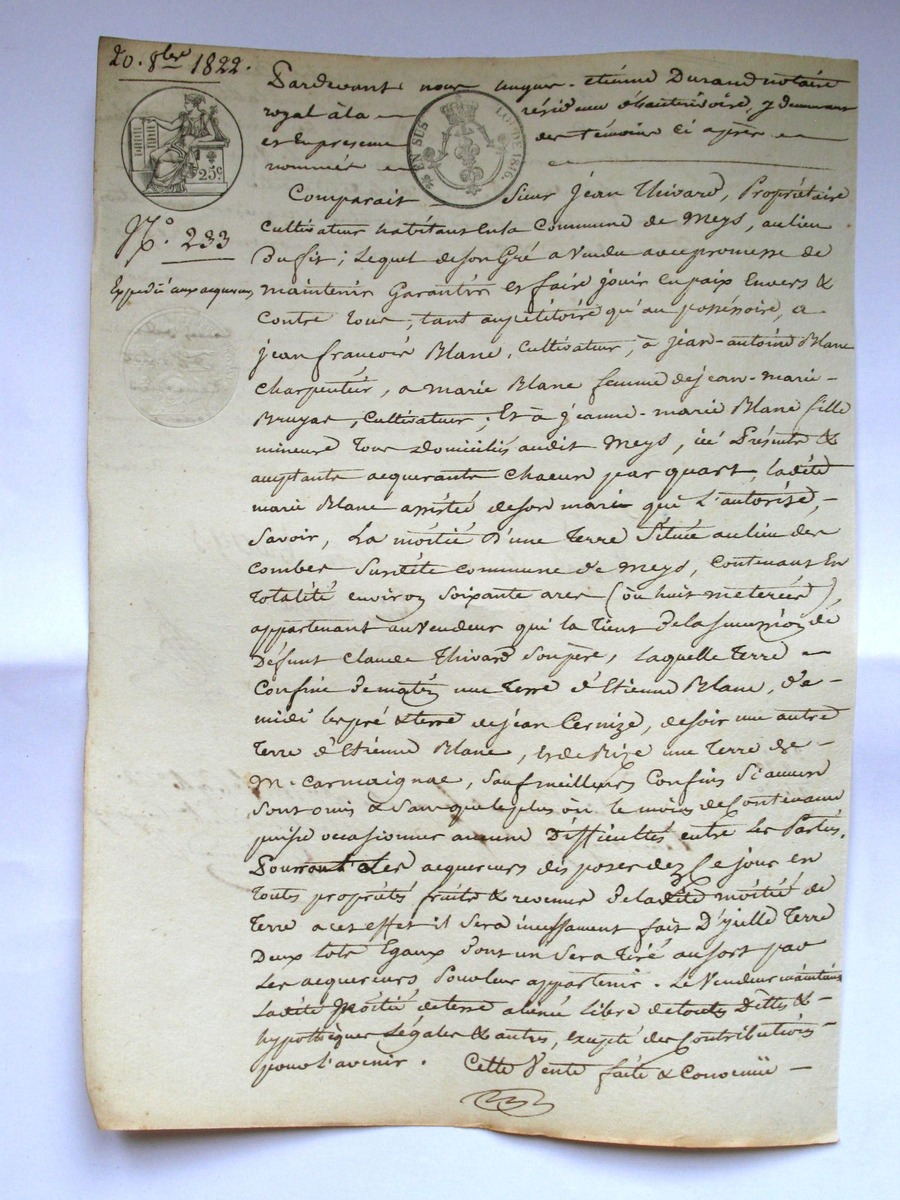 20. 8bre 1822.
TIMBRE ROYAL
25c
EN SUS
LOI DE 1816.
N.° 233
Expédié aux acquereurs
Pardevant nous Etienne Durand notaire
royal à la résidence d'hauterivoire, y demeurant
et en presence des témoins ci après
nommés
Comparait Sieur Jean Thivard, Propriétaire
Cultivateur habitant en la Commune de Meys, au lieu
Du fit; Lequel de son Gré a Vendu avec promesse de
maintenir Garantir et faire jouir en paix Envers &
Contre Tous, tant au pétitoire qu'au possessoire, a
jean francois Blanc, Cultivateur, à jean-antoine Blanc
Charpentier, a marie Blanc femme de jean-marie
Bruyas, Cultivateur; Et à jeanne-marie Blanc fille
mineure Tous domiciliés audit Meys, ici Présents &
acceptants acquerants chacun par quart, ladite
marie Blanc assistée de son mari qui L'autorise,
Savoir, La moitié D'une Terre Située au lieu des
combes Susdite commune de Meys, Contenant En
Totalité environ Soixante ares (ou huit meterées)
appartenant au Vendeur qui la Tient de la succession de
Défunt Claude Thivard Son père, Laquelle Terre
Confine de matin une Terre d'Etienne Blanc, de
midi les pré & terre de jean Cernize, de soir une autre
Terre d'Etienne Blanc, et de Bize une Terre de
M. Carmaignac, Sauf meilleurs Confins Si aucuns
Sont omis & Sans que le plus ou le moins de Contenance
puisse occasionner aucune Difficultés entre Les Parties.
Pourront les acquereurs disposer dez Ce jour en
Toutes propriétés fruits & revenus de ladite moitié de
Terre a cet effet il Sera incessament fait D'ycelle Terre
Deux lots Egaux dont un Sera Tiré au sort par
Les acquereurs Pour leur appartenir. Le Vendeur maintient
Ladite Moitié de terre alienée Libre de touts Dettes &
hypothèques Légales & autres, Excepté des Contributions
pour l'avenir. Cette Vente faite & Convenue